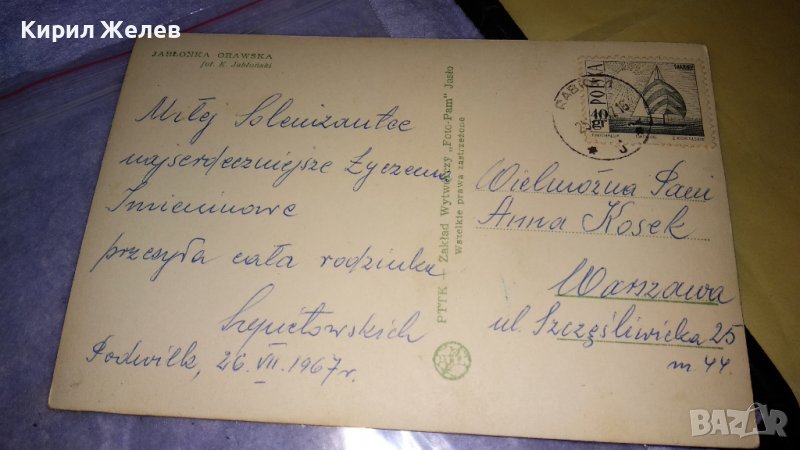 Кирил Желев
JABŁONKA ORAWSKA
fot. K. Jabłoński
Miłej Solenizantce
najserdeczniejsze Życzenia
Imieninowe
przesyła cała rodzinka
Szpietowskich
Podwilk, 26.VII.1967r.
PTTK — Zakład Wytwórczy „Foto-Pam" Jasło
Wszelkie prawa zastrzeżone
POLSKA
10 gr
Wielmożna Pani
Anna Kosek
Warszawa
ul. Szczęśliwicka 25
m 44.
BAZAR